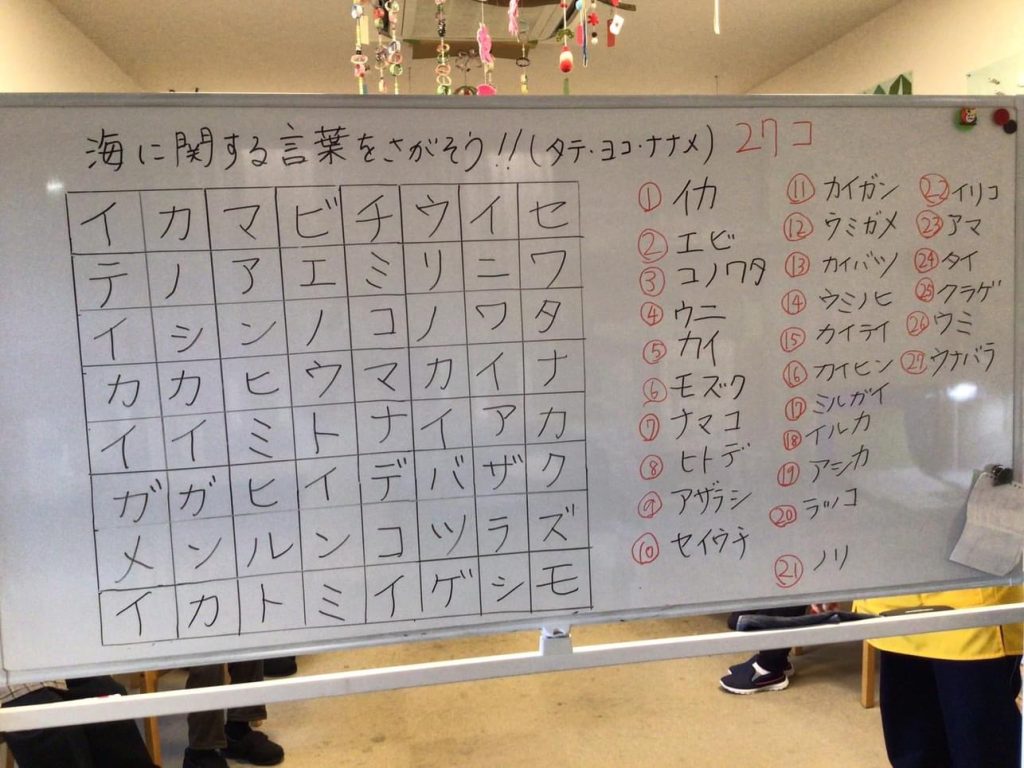 海に関する言葉をさがそう!!(タテ・ヨコ・ナナメ) 27コ
イ カ マ ビ チ ウ イ セ
テ ノ ア エ ミ リ ニ ワ
イ シ ン ノ コ ノ ワ タ
カ カ ヒ ウ マ カ イ ナ
イ イ ミ ト ナ イ ア カ
ガ ガ ヒ イ デ バ ザ ク
メ ン ル ン コ ツ ラ ズ
イ カ ト ミ イ ゲ シ モ
① イカ
② エビ
③ コノワタ
④ ウニ
⑤ カイ
⑥ モズク
⑦ ナマコ
⑧ ヒトデ
⑨ アザラシ
⑩ セイウチ
⑪ カイガン
⑫ ウミガメ
⑬ カイバツ
⑭ ウミノヒ
⑮ カイライ
⑯ カイヒン
⑰ ミルガイ
⑱ イルカ
⑲ アシカ
⑳ ラッコ
㉑ ノリ
㉒ イリコ
㉓ アマ
㉔ タイ
㉕ クラゲ
㉖ ウミ
㉗ ウナバラ